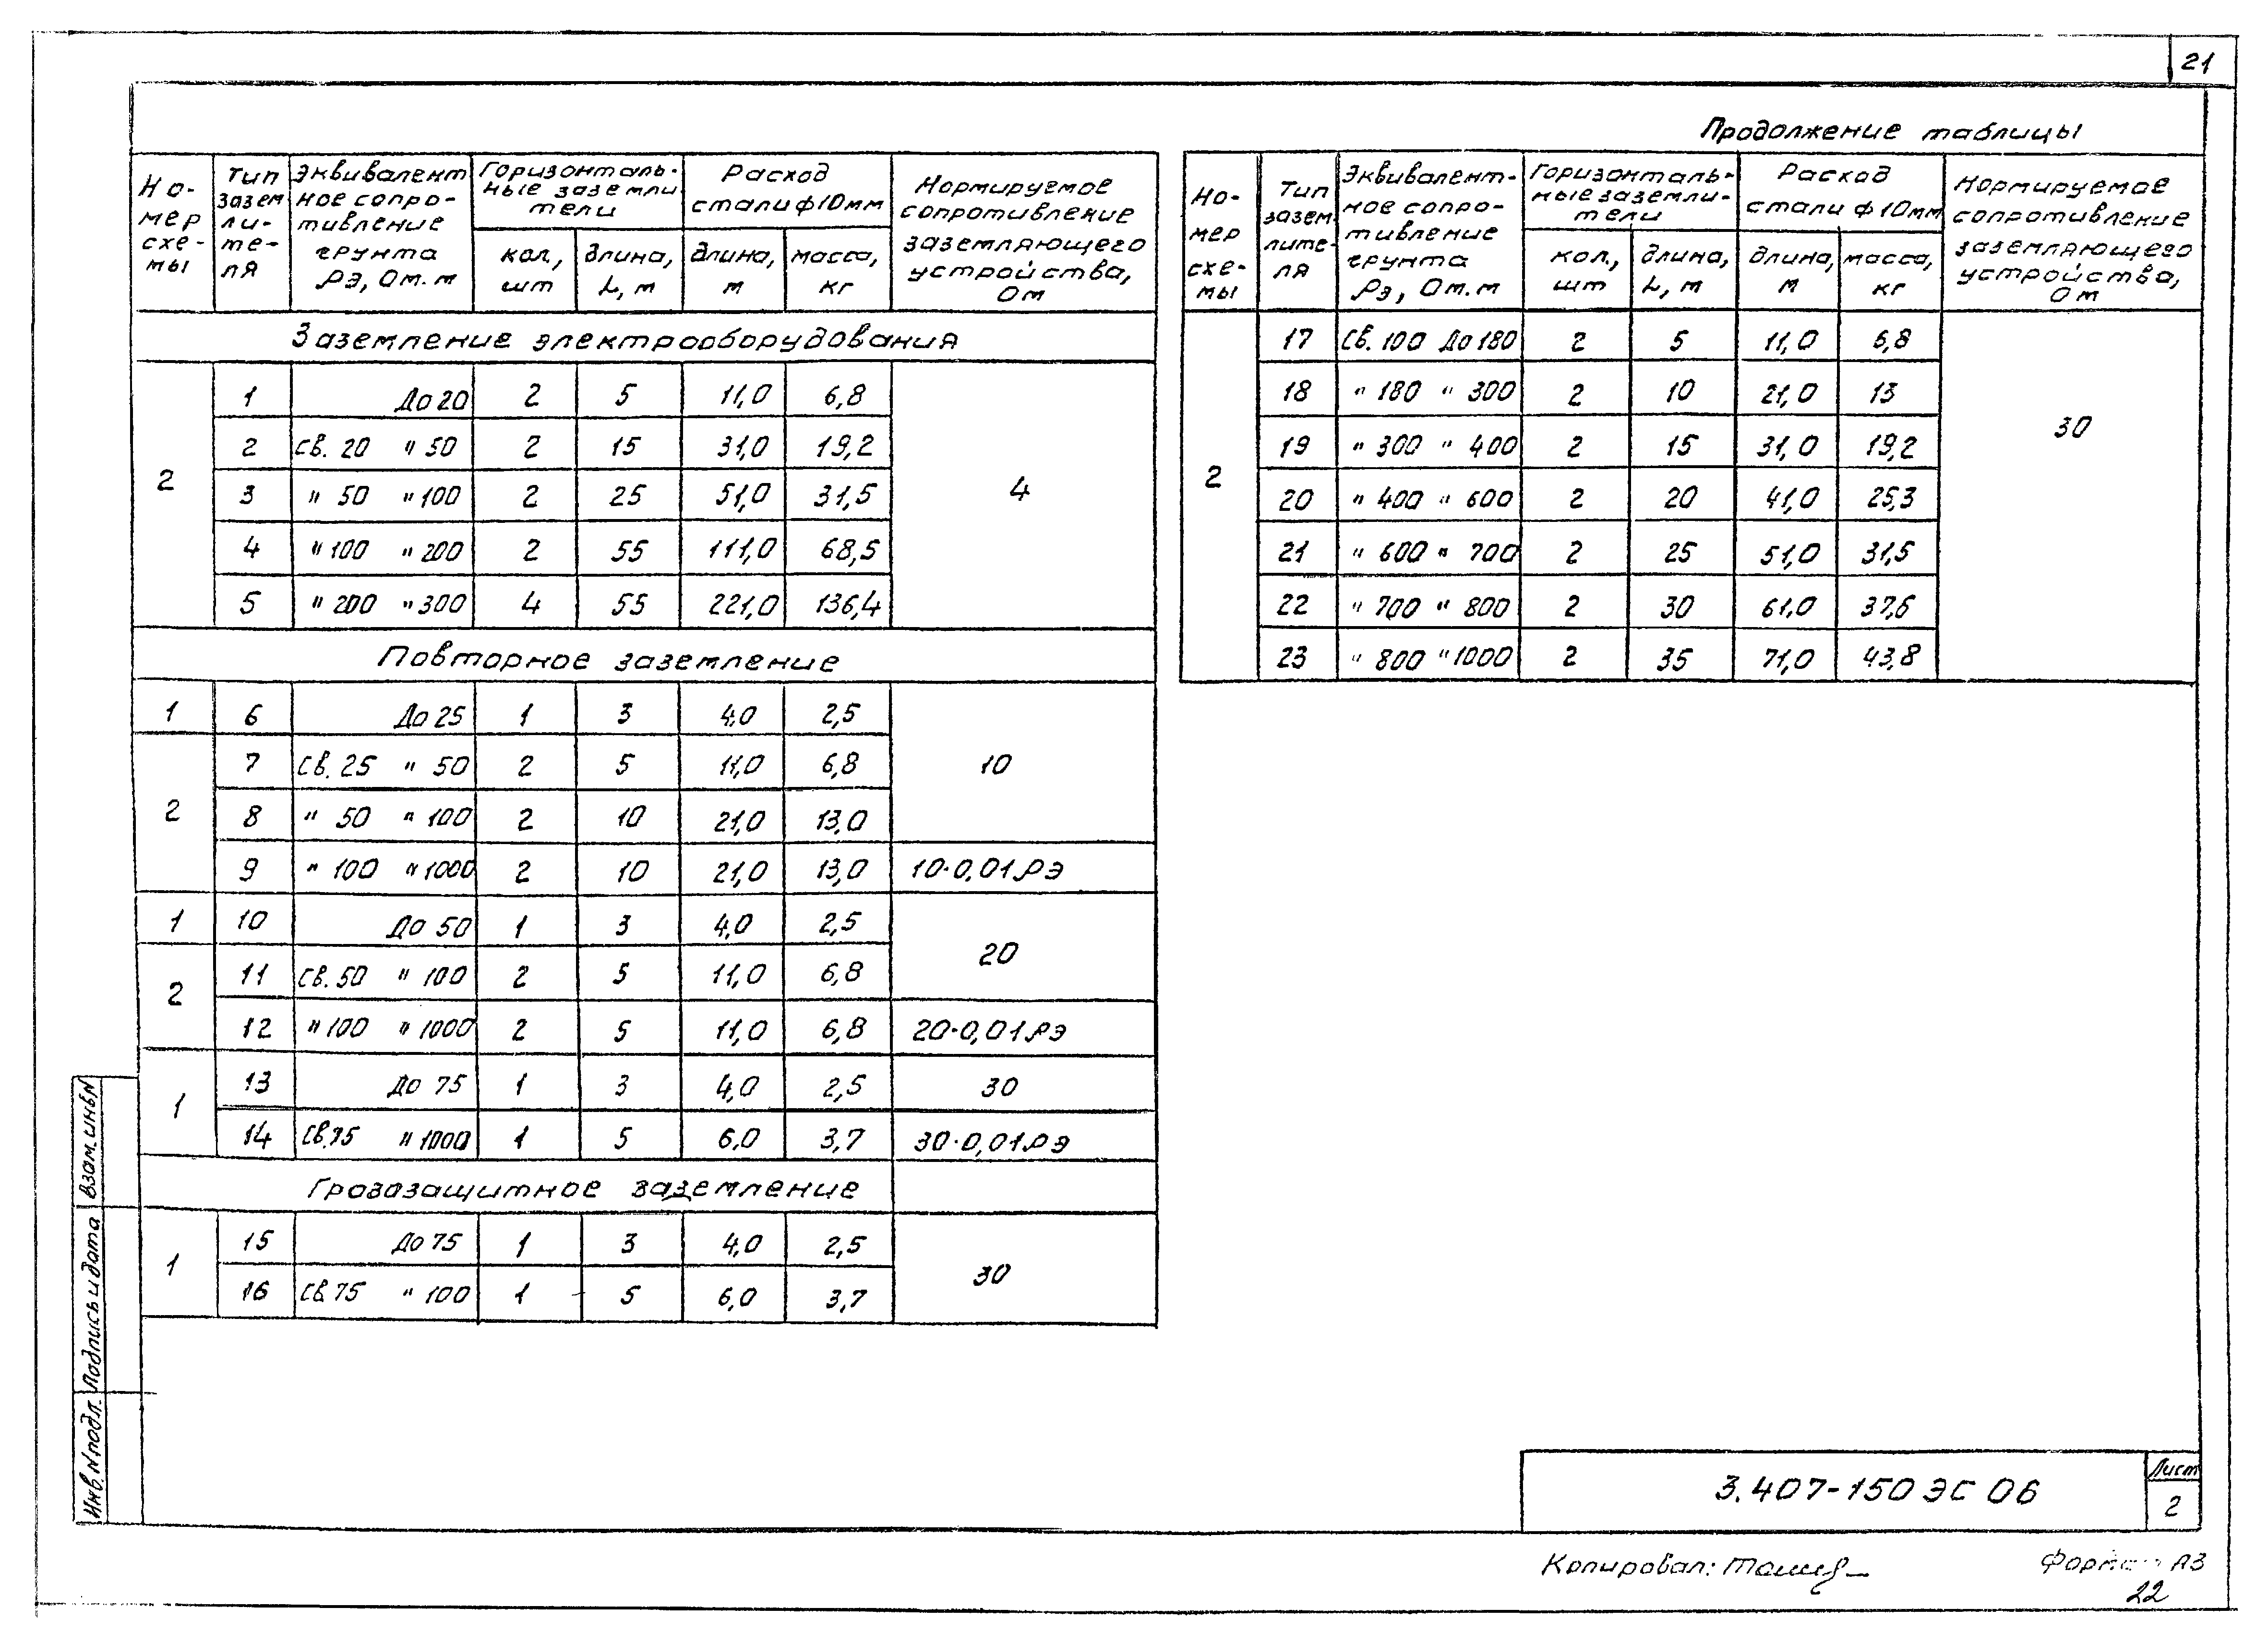 21
Продолжение таблицы
Но-мер схе-мы | Тип зазем ли-те-ля | Эквивалент ное сопро-тивление грунта ρэ, Ом.м | Горизонталь-ные заземли тели | Расход стали ф10мм | Нормируемое сопротивление заземляющего устройства, Ом
кол., шт | длина, L, м | длина, м | масса, кг
Заземление электрооборудования
2 | 1 | До 20 | 2 | 5 | 11,0 | 6,8 | 4
2 | св. 20 " 50 | 2 | 15 | 31,0 | 19,2
3 | " 50 " 100 | 2 | 25 | 51,0 | 31,5
4 | " 100 " 200 | 2 | 55 | 111,0 | 68,5
5 | " 200 " 300 | 4 | 55 | 221,0 | 136,4
Повторное заземление
1 | 6 | До 25 | 1 | 3 | 4,0 | 2,5 | 10
2 | 7 | Св. 25 " 50 | 2 | 5 | 11,0 | 6,8
8 | " 50 " 100 | 2 | 10 | 21,0 | 13,0
9 | " 100 " 1000 | 2 | 10 | 21,0 | 13,0 | 10·0,01ρэ
1 | 10 | До 50 | 1 | 3 | 4,0 | 2,5 | 20
2 | 11 | Св. 50 " 100 | 2 | 5 | 11,0 | 6,8
12 | " 100 " 1000 | 2 | 5 | 11,0 | 6,8 | 20·0,01ρэ
1 | 13 | До 75 | 1 | 3 | 4,0 | 2,5 | 30
14 | Св.75 " 1000 | 1 | 5 | 6,0 | 3,7 | 30·0,01ρэ
Грозозащитное заземление
1 | 15 | До 75 | 1 | 3 | 4,0 | 2,5 | 30
16 | Св 75 " 100 | 1 | 5 | 6,0 | 3,7
Но-мер схе-мы | Тип зазем лите-ля | Эквивалент-ное сопро-тивление грунта ρэ, Ом.м | Горизонталь-ные заземли-тели | Расход стали ф10мм | Нормируемое сопротивление заземляющего устройства, Ом
кол., шт | длина, L, м | длина, м | масса, кг
2 | 17 | Св. 100 До 180 | 2 | 5 | 11,0 | 6,8 | 30
18 | " 180 " 300 | 2 | 10 | 21,0 | 13
19 | " 300 " 400 | 2 | 15 | 31,0 | 19,2
20 | " 400 " 600 | 2 | 20 | 41,0 | 25,3
21 | " 600 " 700 | 2 | 25 | 51,0 | 31,5
22 | " 700 " 800 | 2 | 30 | 61,0 | 37,6
23 | " 800 " 1000 | 2 | 35 | 71,0 | 43,8
Инв.№подл. Подпись и дата Взам.инв№
3.407-150 ЭС 06
Лист
2
Копировал:
Формат А3
22